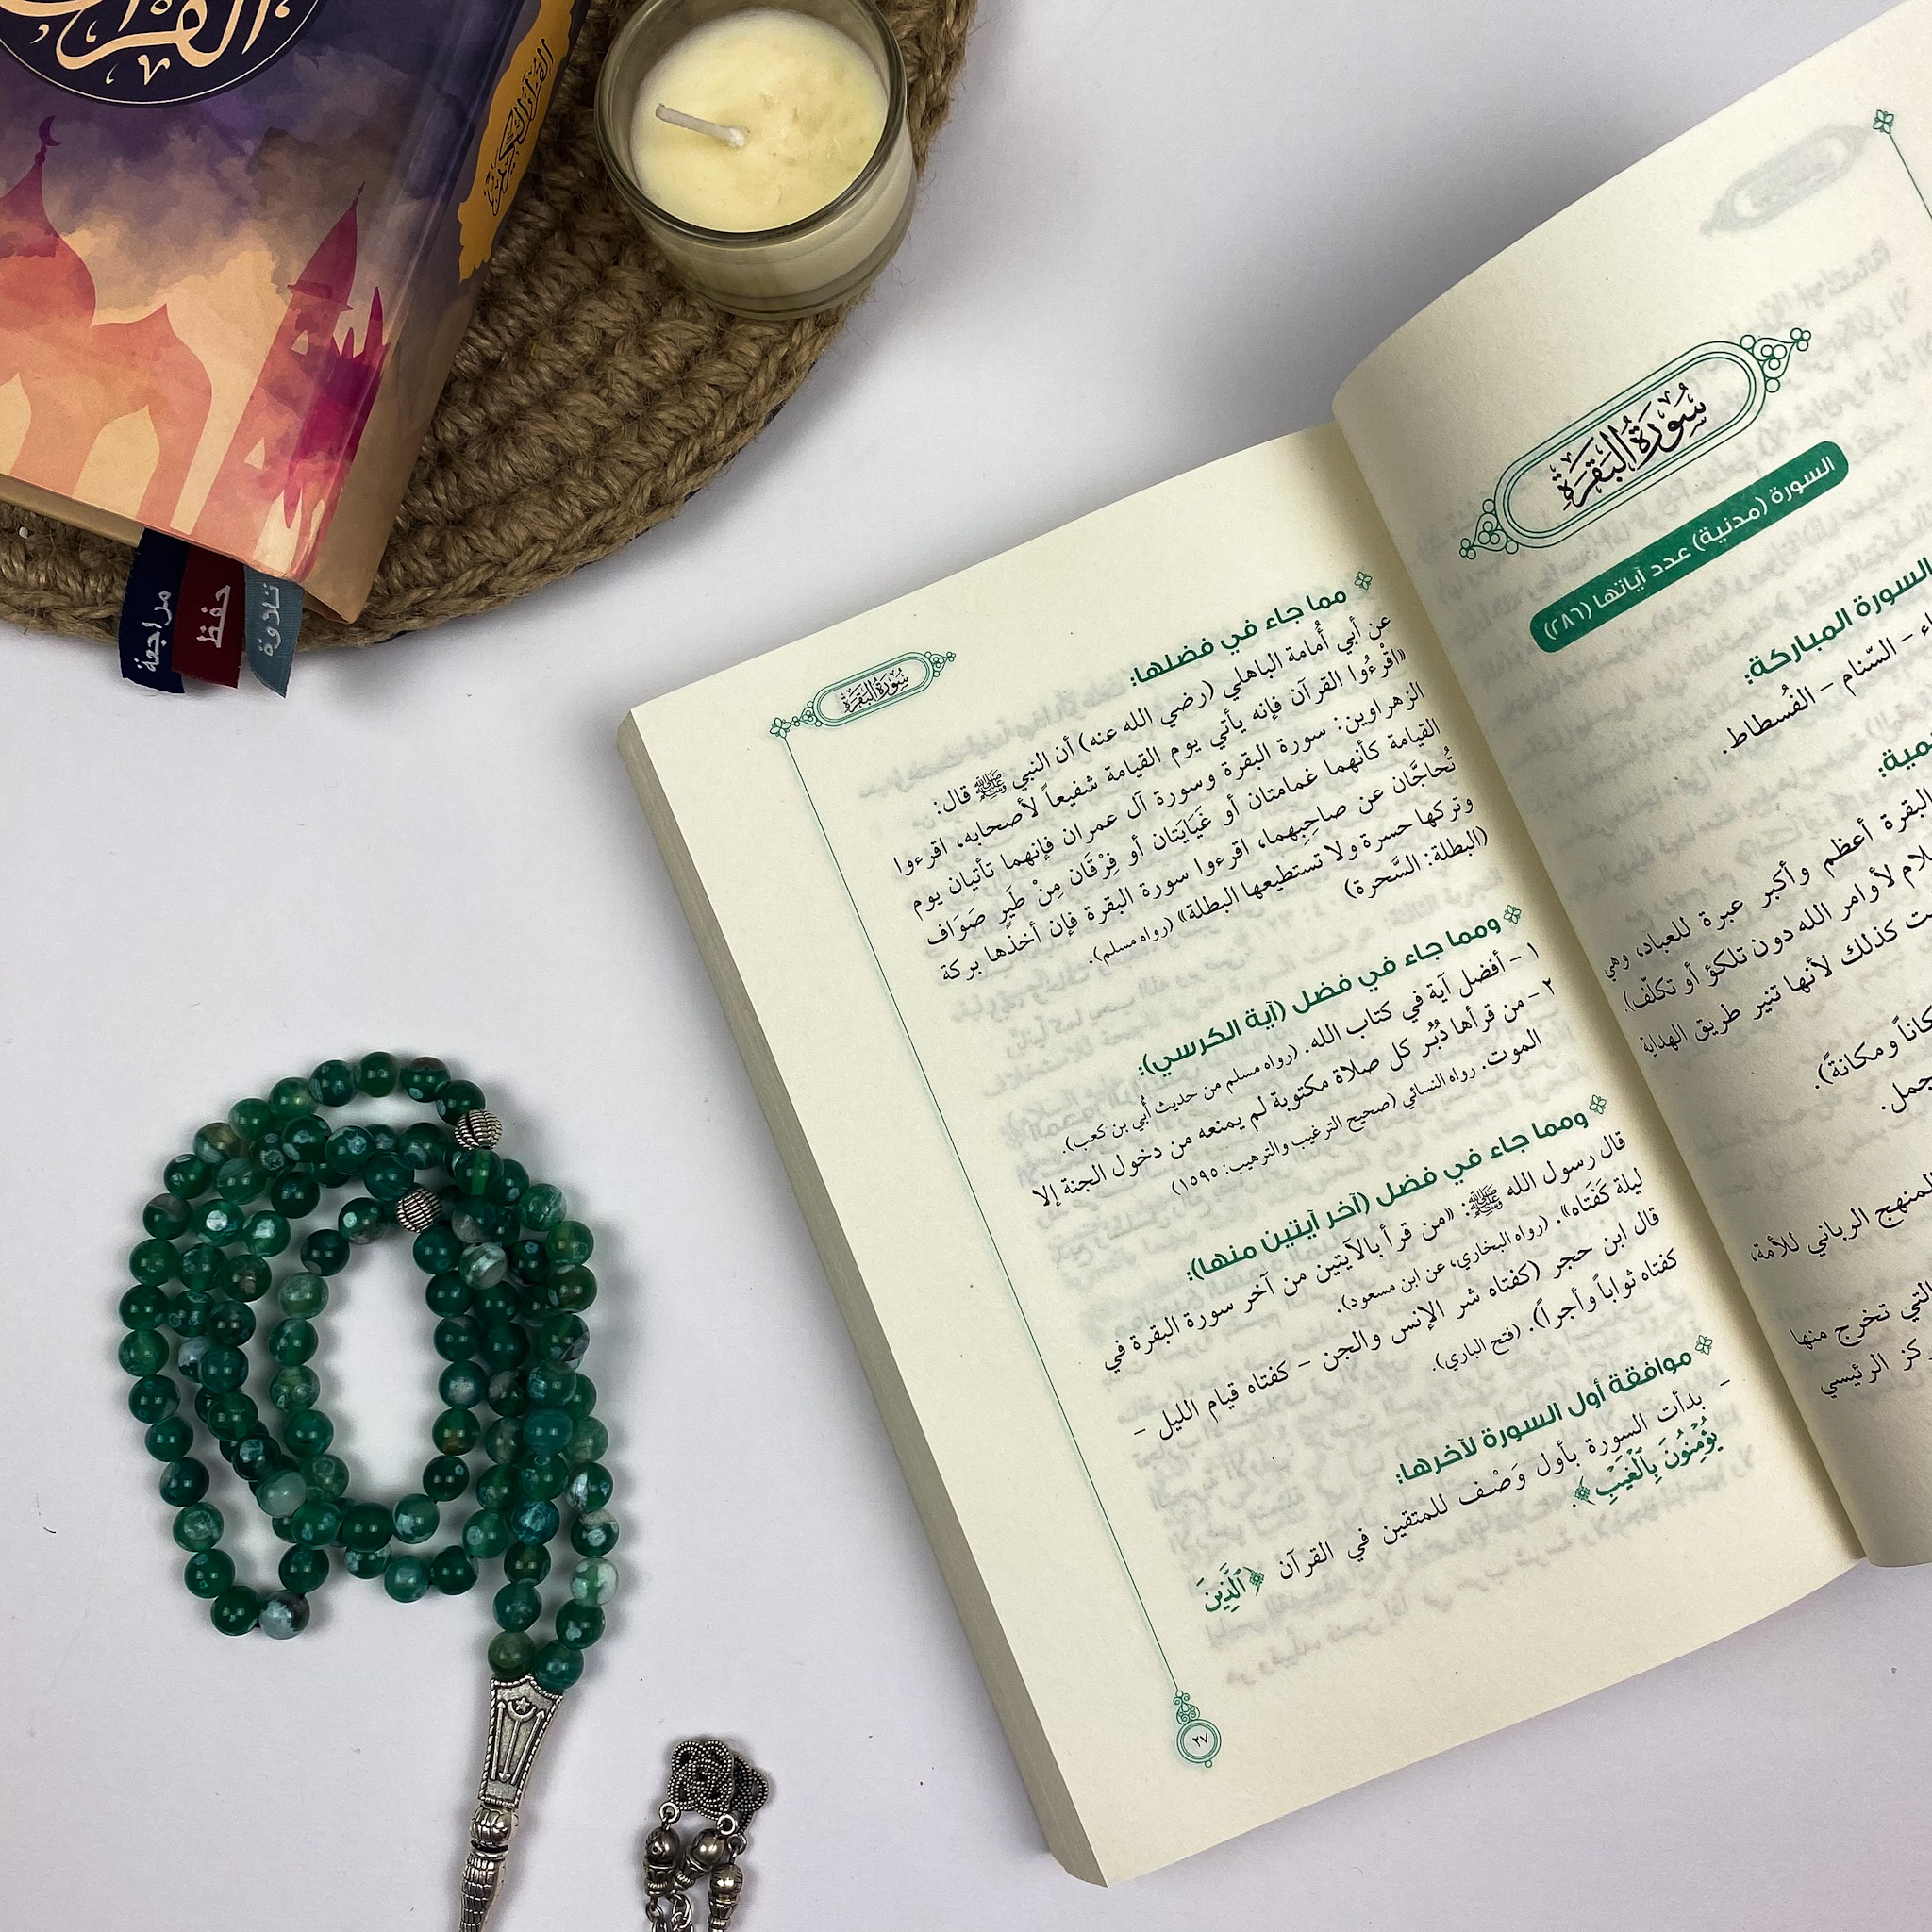 القرآن
القرآن الكريم
مراجعة
حفظ
تلاوة
سورة البقرة
السورة (مدنية) عدد آياتها (٢٨٦)
السورة المباركة:
السّنام - الفُسطاط.
البقرة أعظم وأكبر عبرة للعباد، وهي
لأوامر الله دون تلكؤ أو تكلّف).
كذلك لأنها تنير طريق الهداية
ومكانةً).
المنهج الرباني للأمة،
التي تخرج منها
الرئيسي
سورة البقرة
مما جاء في فضلها:
عن أبي أُمامة الباهلي (رضي الله عنه) أن النبي ﷺ قال:
«اقْرءُوا القرآن فإنه يأتي يوم القيامة شفيعاً لأصحابه، اقرءوا
الزهراوين: سورة البقرة وسورة آل عمران فإنهما تأتيان يوم
القيامة كأنهما غمامتان أو غَيَايَتان أو فِرْقَان مِنْ طَيرٍ صَوَاف
تُحاجَّان عن صاحِبِهما، اقرءوا سورة البقرة فإن أخذها بركة
وتركها حسرة ولا تستطيعها البطلة» (رواه مسلم).
(البطلة: السَّحرة)
ومما جاء في فضل (آية الكرسي):
١ - أفضل آية في كتاب الله. (رواه مسلم من حديث أُبي بن كعب).
٢ - من قرأها دُبُر كل صلاة مكتوبة لم يمنعه من دخول الجنة إلا
الموت. رواه النسائي (صحيح الترغيب والترهيب: ١٥٩٥)
ومما جاء في فضل (آخر آيتين منها):
قال رسول الله ﷺ: «من قرأ بالآيتين من آخر سورة البقرة في
ليلة كَفَتاه». (رواه البخاري، عن ابن مسعود).
قال ابن حجر (كفتاه شر الإنس والجن - كفتاه قيام الليل -
كفتاه ثواباً وأجراً). (فتح الباري).
موافقة أول السورة لآخرها:
- بدأت السورة بأول وَصْف للمتقين في القرآن ﴿الَّذِينَ
يُؤْمِنُونَ بِالْغَيْبِ﴾.
٢٧